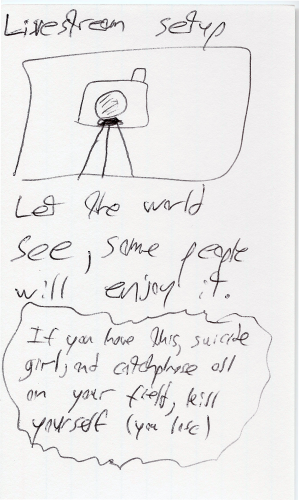 Livestream setup
Let the world
see, some people
will enjoy it.
If you have this, suicide
girl, and catchphrase all
on your field, kill
yourself (you lose)